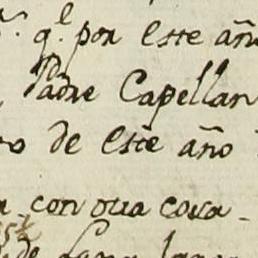 q.l por este año
Padre Capellan
de este año
con otra cova
de